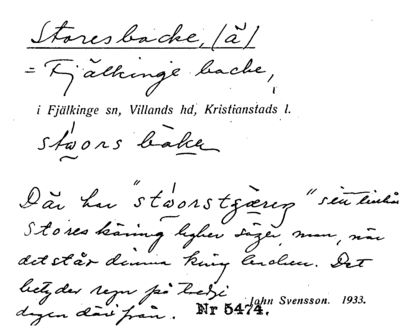 Storesbacke, /ă/
= Fjälkinge backe,
i Fjälkinge sn, Villands hd, Kristianstads l.
stwors bàkə
Där har "stworstgæreŋ" sitt
Stores käring säger man, när
det står dimma kring backen. Det
betyder regn på tredje
dagen därifrån.
John Svensson. 1933.
Nr 5474.